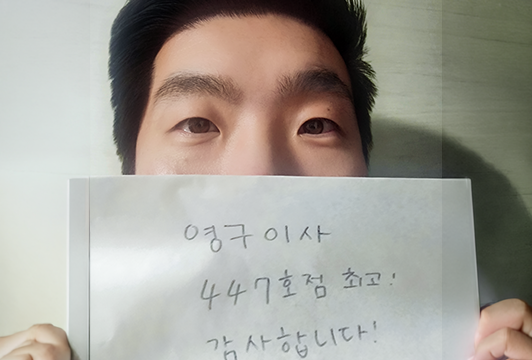 영구이사
447호점 최고!
감사합니다!